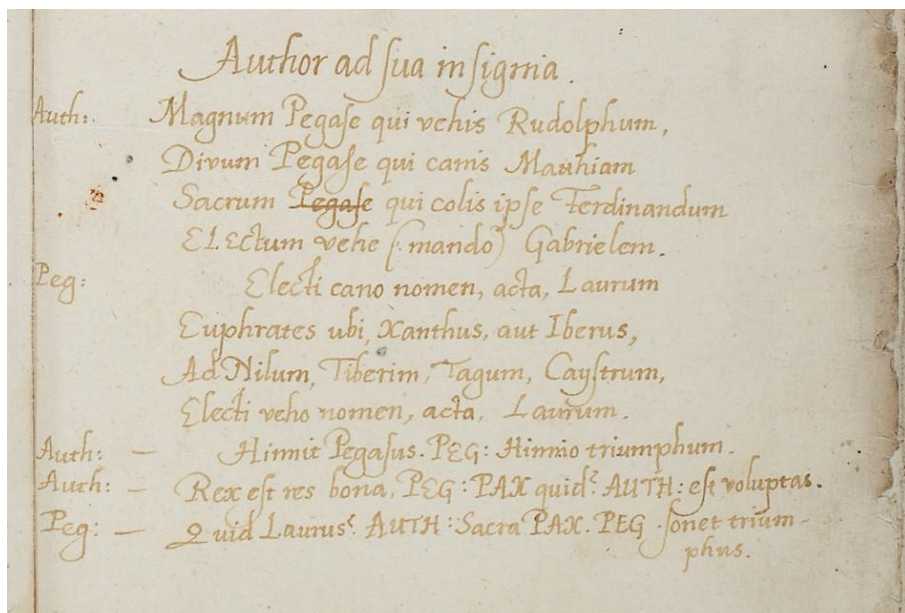 Author ad sua insignia.
Auth: Magnum Pegase qui vehis Rudolphum,
Divum Pegase qui canis Mathiam
Sacrum Pegase qui colis ipse Ferdinandum
ELEctum vehe (: mando) Gabrielem.
Peg: Electi cano nomen, acta, Laurum
Euphrates ubi, Xanthus, aut Iberus,
Ad Nilum, Tiberim, Tagum, Caystrum,
Electi veho nomen, acta, Laurum.
Auth: — Hinnit Pegasus. PEG: Hinnio triumphum.
Auth: — Rex est res bona. PEG: PAX quid? AUTH: est voluptas.
Peg: — Quid Laurus? AUTH: Sacra PAX. PEG. sonet trium-
phus.